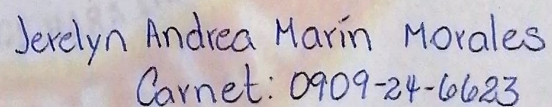 Jerelyn Andrea Marín Morales
Carnet: 0909-24-6623